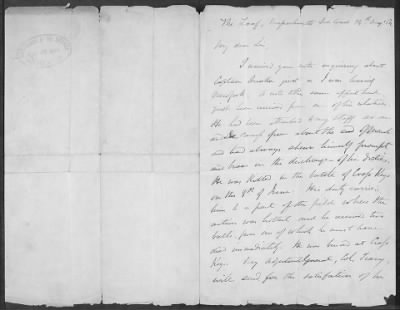 My dear Sir,
I received your note enquiring about
Captain just as I was leaving
A note to the same effect had
just been received from one of his relatives
He had been attached to my staff as an
aide de camp from about the 2nd of April
and had always shown himself prompt
and brave in the discharge of his duties,
He was killed in the battle of Cross Keys
on the 8th of June. His duty carried
him to a part of the field where the
action was hottest and he received two
balls, from one of which he must have
died immediately. He was buried at Cross
Keys. My Adjutant General, Col.
will send for the satisfaction of his